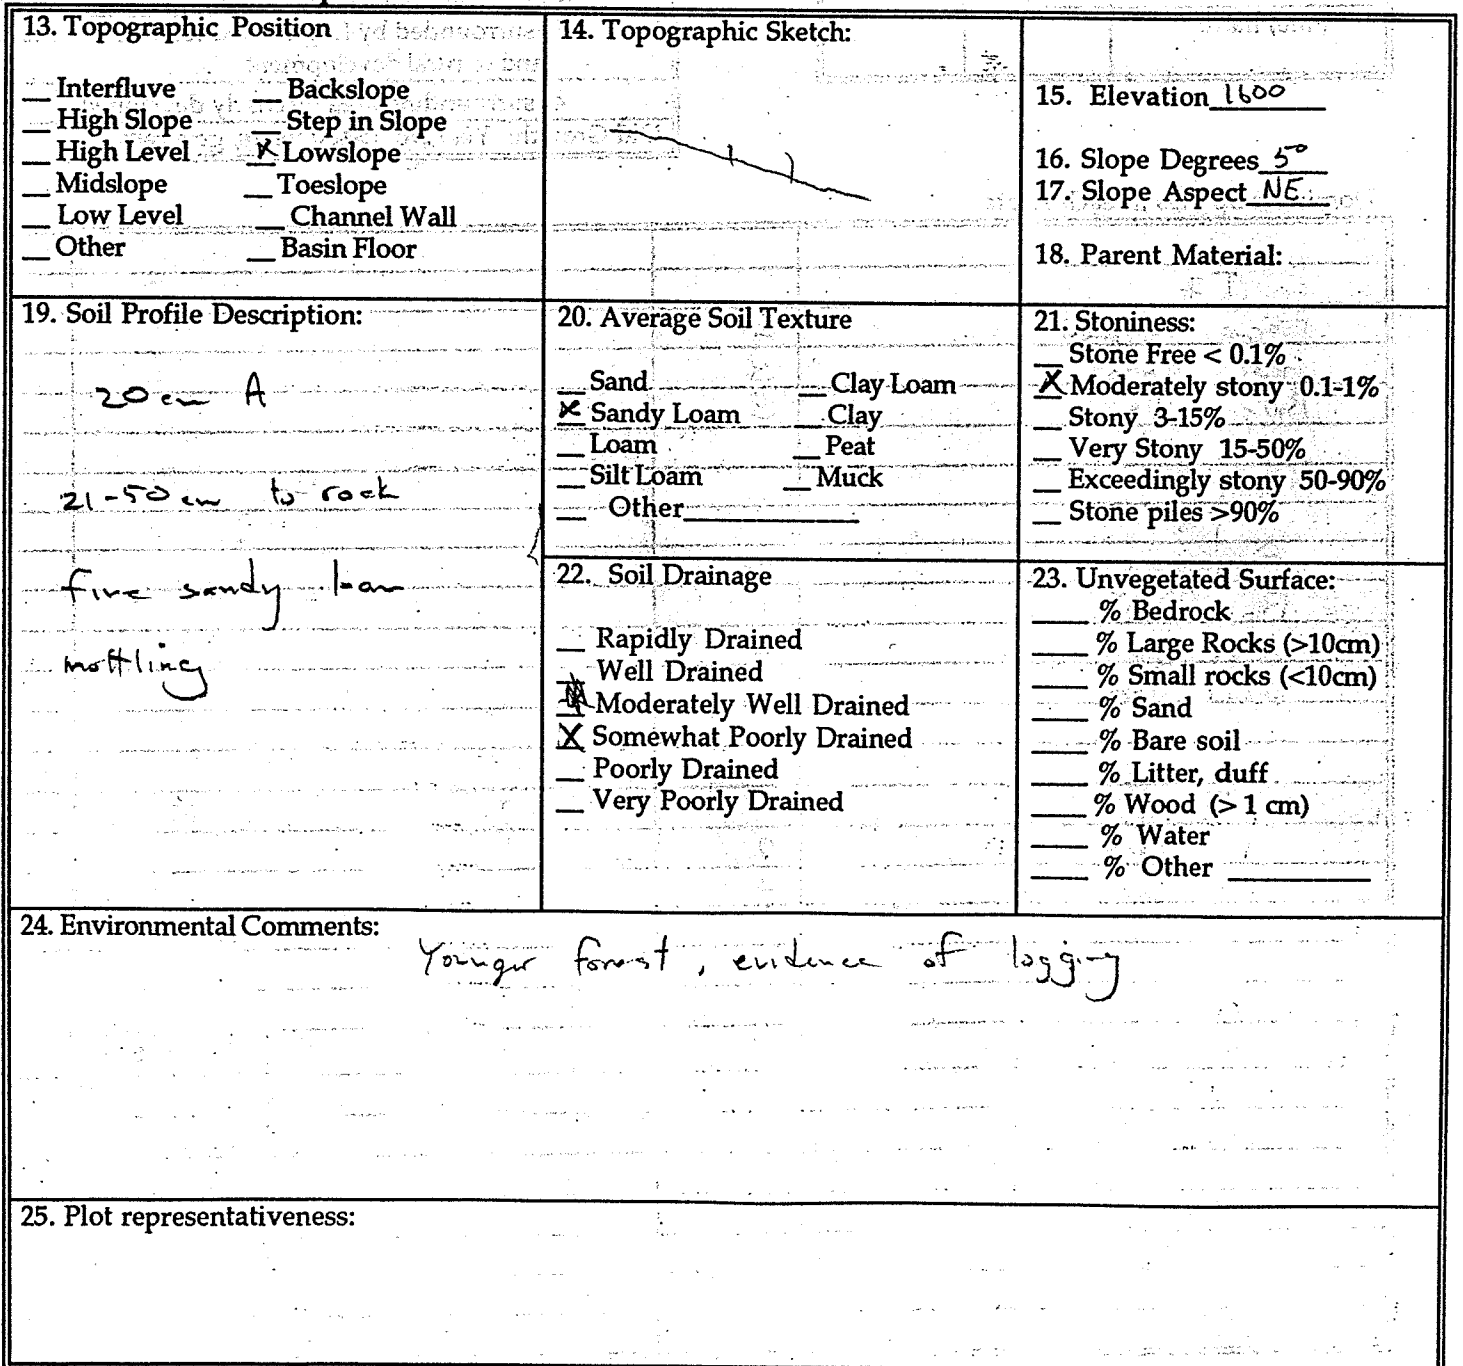 13. Topographic Position
__ Interfluve __ Backslope
__ High Slope __ Step in Slope
__ High Level X Lowslope
__ Midslope __ Toeslope
__ Low Level __ Channel Wall
__ Other __ Basin Floor
14. Topographic Sketch:
15. Elevation 1600
16. Slope Degrees 5°
17. Slope Aspect NE
18. Parent Material:
19. Soil Profile Description:
20 cm A
21-50 cm to rock
fine sandy loam
mottling
20. Average Soil Texture
__ Sand __ Clay Loam
X Sandy Loam __ Clay
__ Loam __ Peat
__ Silt Loam __ Muck
__ Other__________
21. Stoniness:
__ Stone Free < 0.1%
X Moderately stony 0.1-1%
__ Stony 3-15%
__ Very Stony 15-50%
__ Exceedingly stony 50-90%
__ Stone piles >90%
22. Soil Drainage
__ Rapidly Drained
__ Well Drained
__ Moderately Well Drained
X Somewhat Poorly Drained
__ Poorly Drained
__ Very Poorly Drained
23. Unvegetated Surface:
___ % Bedrock
___ % Large Rocks (>10cm)
___ % Small rocks (<10cm)
___ % Sand
___ % Bare soil
___ % Litter, duff
___ % Wood (> 1 cm)
___ % Water
___ % Other ________
24. Environmental Comments:
Younger forest, evidence of logging
25. Plot representativeness: